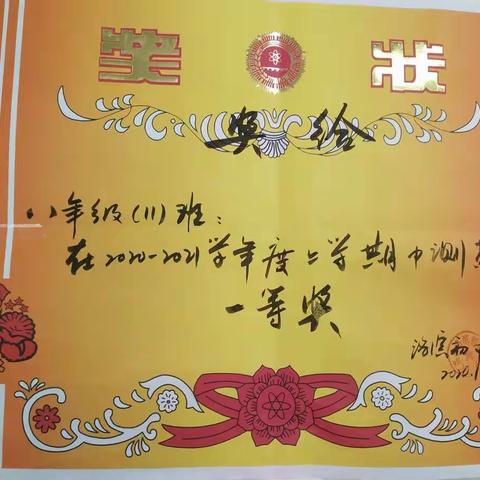 奖 状
奖给
八年级(11)班:
在2020-2021学年度上学期中测
一等奖
洛滨初
2020.